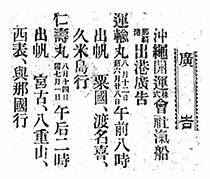 廣告
沖繩開運株式會社汽船
出港廣告
運輸丸 八月十一日 舊六月廿八日 午前八時
出帆 粟國、渡名喜、
久米島行
仁壽丸 八月十四日 舊七月一日 午后二時
出帆 宮古、八重山、
西表、與那國行